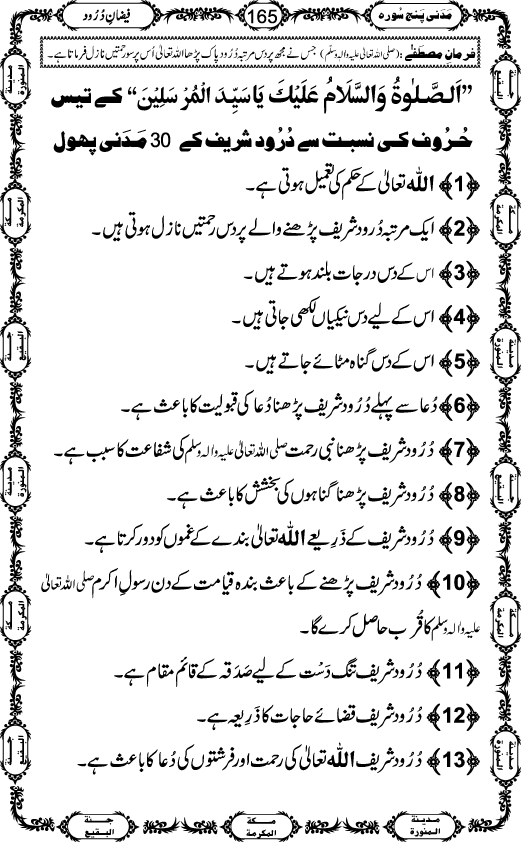 مَدَنی پنج سورہ 165 فیضانِ دُرُود
فرمانِ مصطَفٰے: (صلی اللہ تعالیٰ علیہ والہ وسلّم) جس نے مجھ پر دس مرتبہ دُرُودِ پاک پڑھا اللہ تعالیٰ اُس پر سو رحمتیں نازل فرماتا ہے۔
”اَلصَّلٰوةُ وَالسَّلَامُ عَلَيْكَ يَاسَيِّدَ الْمُرْسَلِيْنَ“ کے تیس
حُرُوف کی نسبت سے دُرُود شریف کے 30 مَدَنی پھول
﴿1﴾ اللہ تعالیٰ کے حکم کی تعمیل ہوتی ہے۔
﴿2﴾ ایک مرتبہ دُرُود شریف پڑھنے والے پر دس رحمتیں نازل ہوتی ہیں۔
﴿3﴾ اس کے دس درجات بلند ہوتے ہیں۔
﴿4﴾ اس کے لیے دس نیکیاں لکھی جاتی ہیں۔
﴿5﴾ اس کے دس گناہ مٹائے جاتے ہیں۔
﴿6﴾ دُعا سے پہلے دُرُود شریف پڑھنا دُعا کی قبولیت کا باعث ہے۔
﴿7﴾ دُرُود شریف پڑھنا نبی رحمت صلی اللہ تعالیٰ علیہ والہ وسلم کی شفاعت کا سبب ہے۔
﴿8﴾ دُرُود شریف پڑھنا گناہوں کی بخشش کا باعث ہے۔
﴿9﴾ دُرُود شریف کے ذَرِیعے اللہ تعالیٰ بندے کے غموں کو دور کرتا ہے۔
﴿10﴾ دُرُود شریف پڑھنے کے باعث بندہ قیامت کے دن رسولِ اکرم صلی اللہ تعالیٰ
علیہ والہ وسلم کا قُرب حاصل کرے گا۔
﴿11﴾ دُرُود شریف تنگ دَسْت کے لیے صَدَقہ کے قائم مقام ہے۔
﴿12﴾ دُرُود شریف قضائے حاجات کا ذَرِیعہ ہے۔
﴿13﴾ دُرُود شریف اللہ تعالیٰ کی رحمت اور فرشتوں کی دُعا کا باعث ہے۔
مدينة المنورة
مكة المكرمة
جنة البقيع